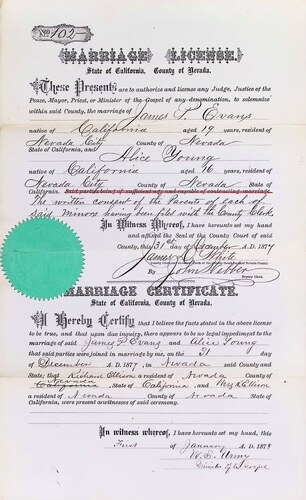 No 102
MARRIAGE LICENSE.
State of California, County of Nevada.
These Presents are to authorize and license any Judge, Justice of the
Peace, Mayor, Priest, or Minister of the Gospel of any denomination, to solemnize
within said County, the marriage of James P. Evans
native of California aged 19 years, resident of
Nevada City County of Nevada
State of California, and Alice Young
native of California aged 16 years, resident of
Nevada City County of Nevada State of
California, Said parties being of sufficient age and capable of contracting marriage.
The written consent of the Parents of each of
Said Minors having been filed with the County Clerk
In Witness Whereof, I have hereunto set my hand
and affixed the Seal of the County Court of said
County, this 31st day of December A. D. 1877
James D. White
By John Webber
Deputy Clerk.
MARRIAGE CERTIFICATE.
State of California, County of Nevada.
I Hereby Certify that I believe the facts stated in the above license
to be true, and that upon due inquiry, there appears to be no legal impediment to the
marriage of said James P. Evans and Alice Young
that said parties were joined in marriage by me, on the 31 day
of December A. D. 1877, in Nevada said County and
State; that Richard Ellison a resident of Nevada County
of Nevada California, State of California, and Mrs R Ellison
a resident of Nevada County of Nevada State of
California, were present as witnesses of said ceremony.
In witness whereof, I have hereunto set my hand, this
First of January A. D. 1878
W. S. Urmy
Minister of the Gospel